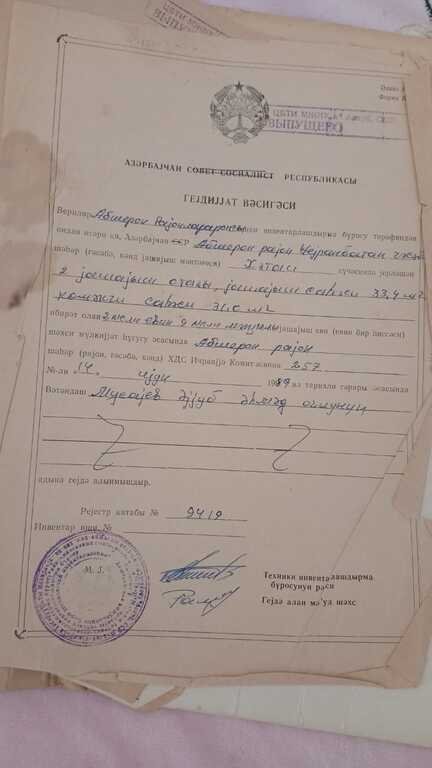 ВЫПУЩЕНО
АЗӘРБАЈҸАН СОВЕТ СОСИАЛИСТ РЕСПУБЛИКАСЫ
ГЕЈДИЈЈАТ ВӘСИГӘСИ
Верилир Абшерон инвентарлашдырма бүросу тәрәфиндән
ондан өтәри ки, Азәрбајҹан ССР Абшерон рајон Ҹејранбатан
шәһәр (гәсәбә, кәнд јашајыш мәнтәгәси) күчәсиндә јерләшән
2 јашајыш отағы, јашајыш саһәси 33,4 м²
көмәкчи саһәси 31,0 м²
ибарәт олан јашајыш еви (евин бир һиссәси)
шәхси мүлкијјәт һүгугу әсасында Абшерон рајон
шәһәр (рајон, гәсәбә, кәнд) ХДС Иҹраијјә Комитәсинин 257
№-ли 14. ијун 1989 ҹу ил тарихли гәрары әсасында
Вәтәндаш Мусајев Әјјуб Әһмәд оғлунун
адына гејдә алынмышдыр.
Рејестр китабы № 9419
Инвентар иши №
М. Ј.
Техники инвентарлашдырма
бүросунун рәиси
Гејдә алан мәс'ул шәхс